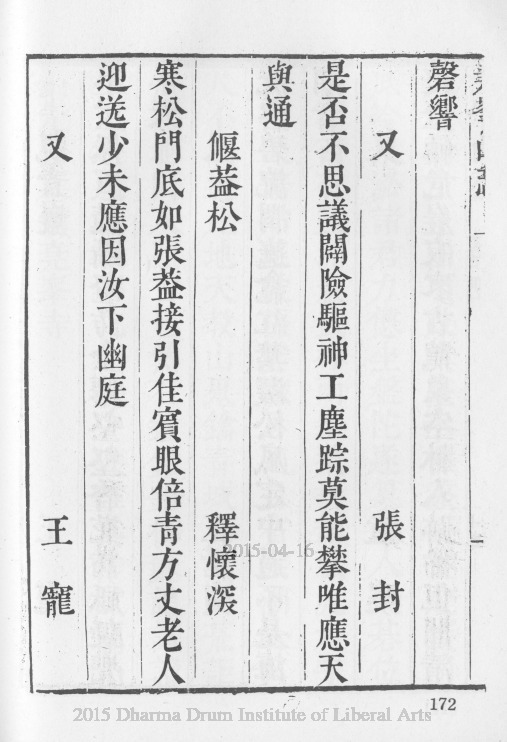 磬響
又 張封
是否不思議闢險驅神工塵踪莫能攀唯應天
與通
偃葢松 釋懷深
寒松門底如張葢接引佳賓眼倍靑方丈老人
迎送少未應因汝下幽庭
又 王寵
172
2015-04-16
2015 Dharma Drum Institute of Liberal Arts